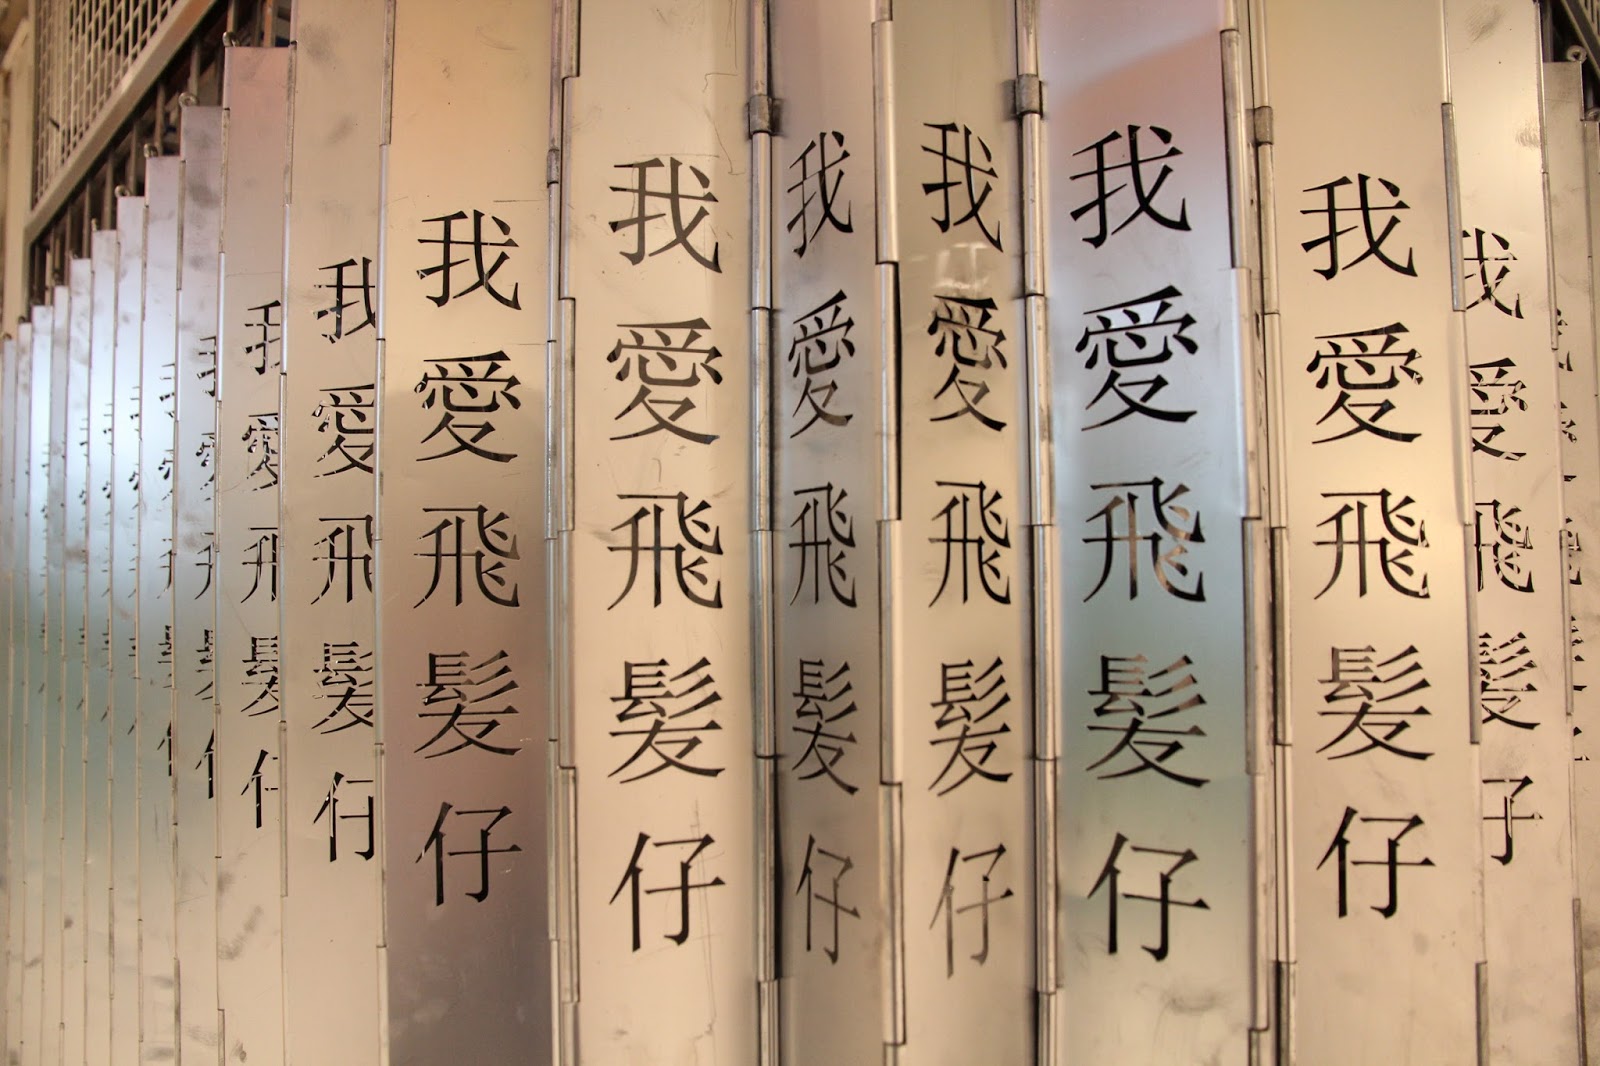 我愛飛髮仔
我愛飛髮仔
我愛飛髮仔
我愛飛髮仔
我愛飛髮仔
我愛飛髮仔
我愛飛髮仔
我愛飛髮仔